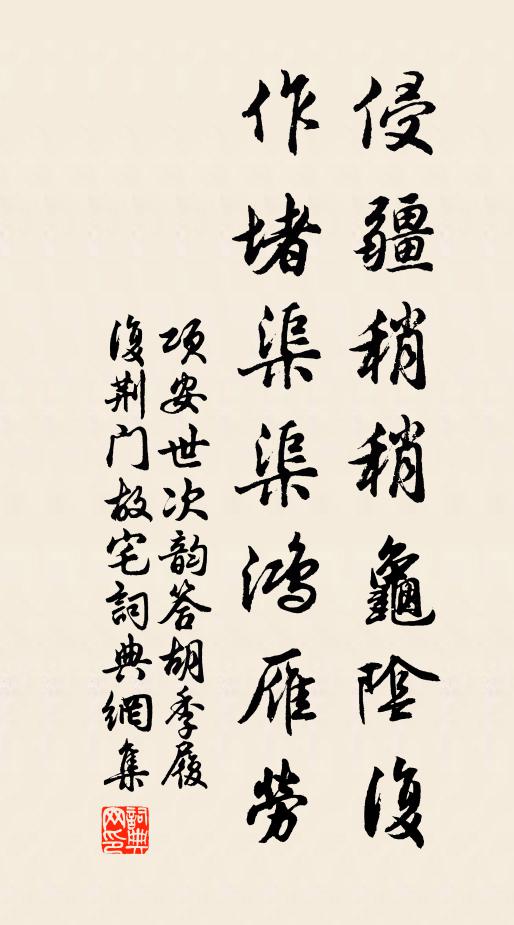 侵疆稍稍龜陰復
作堵渠渠鴻雁勞
項安世次韵答胡季履
復荆门故宅詞典網集
詞典
网印